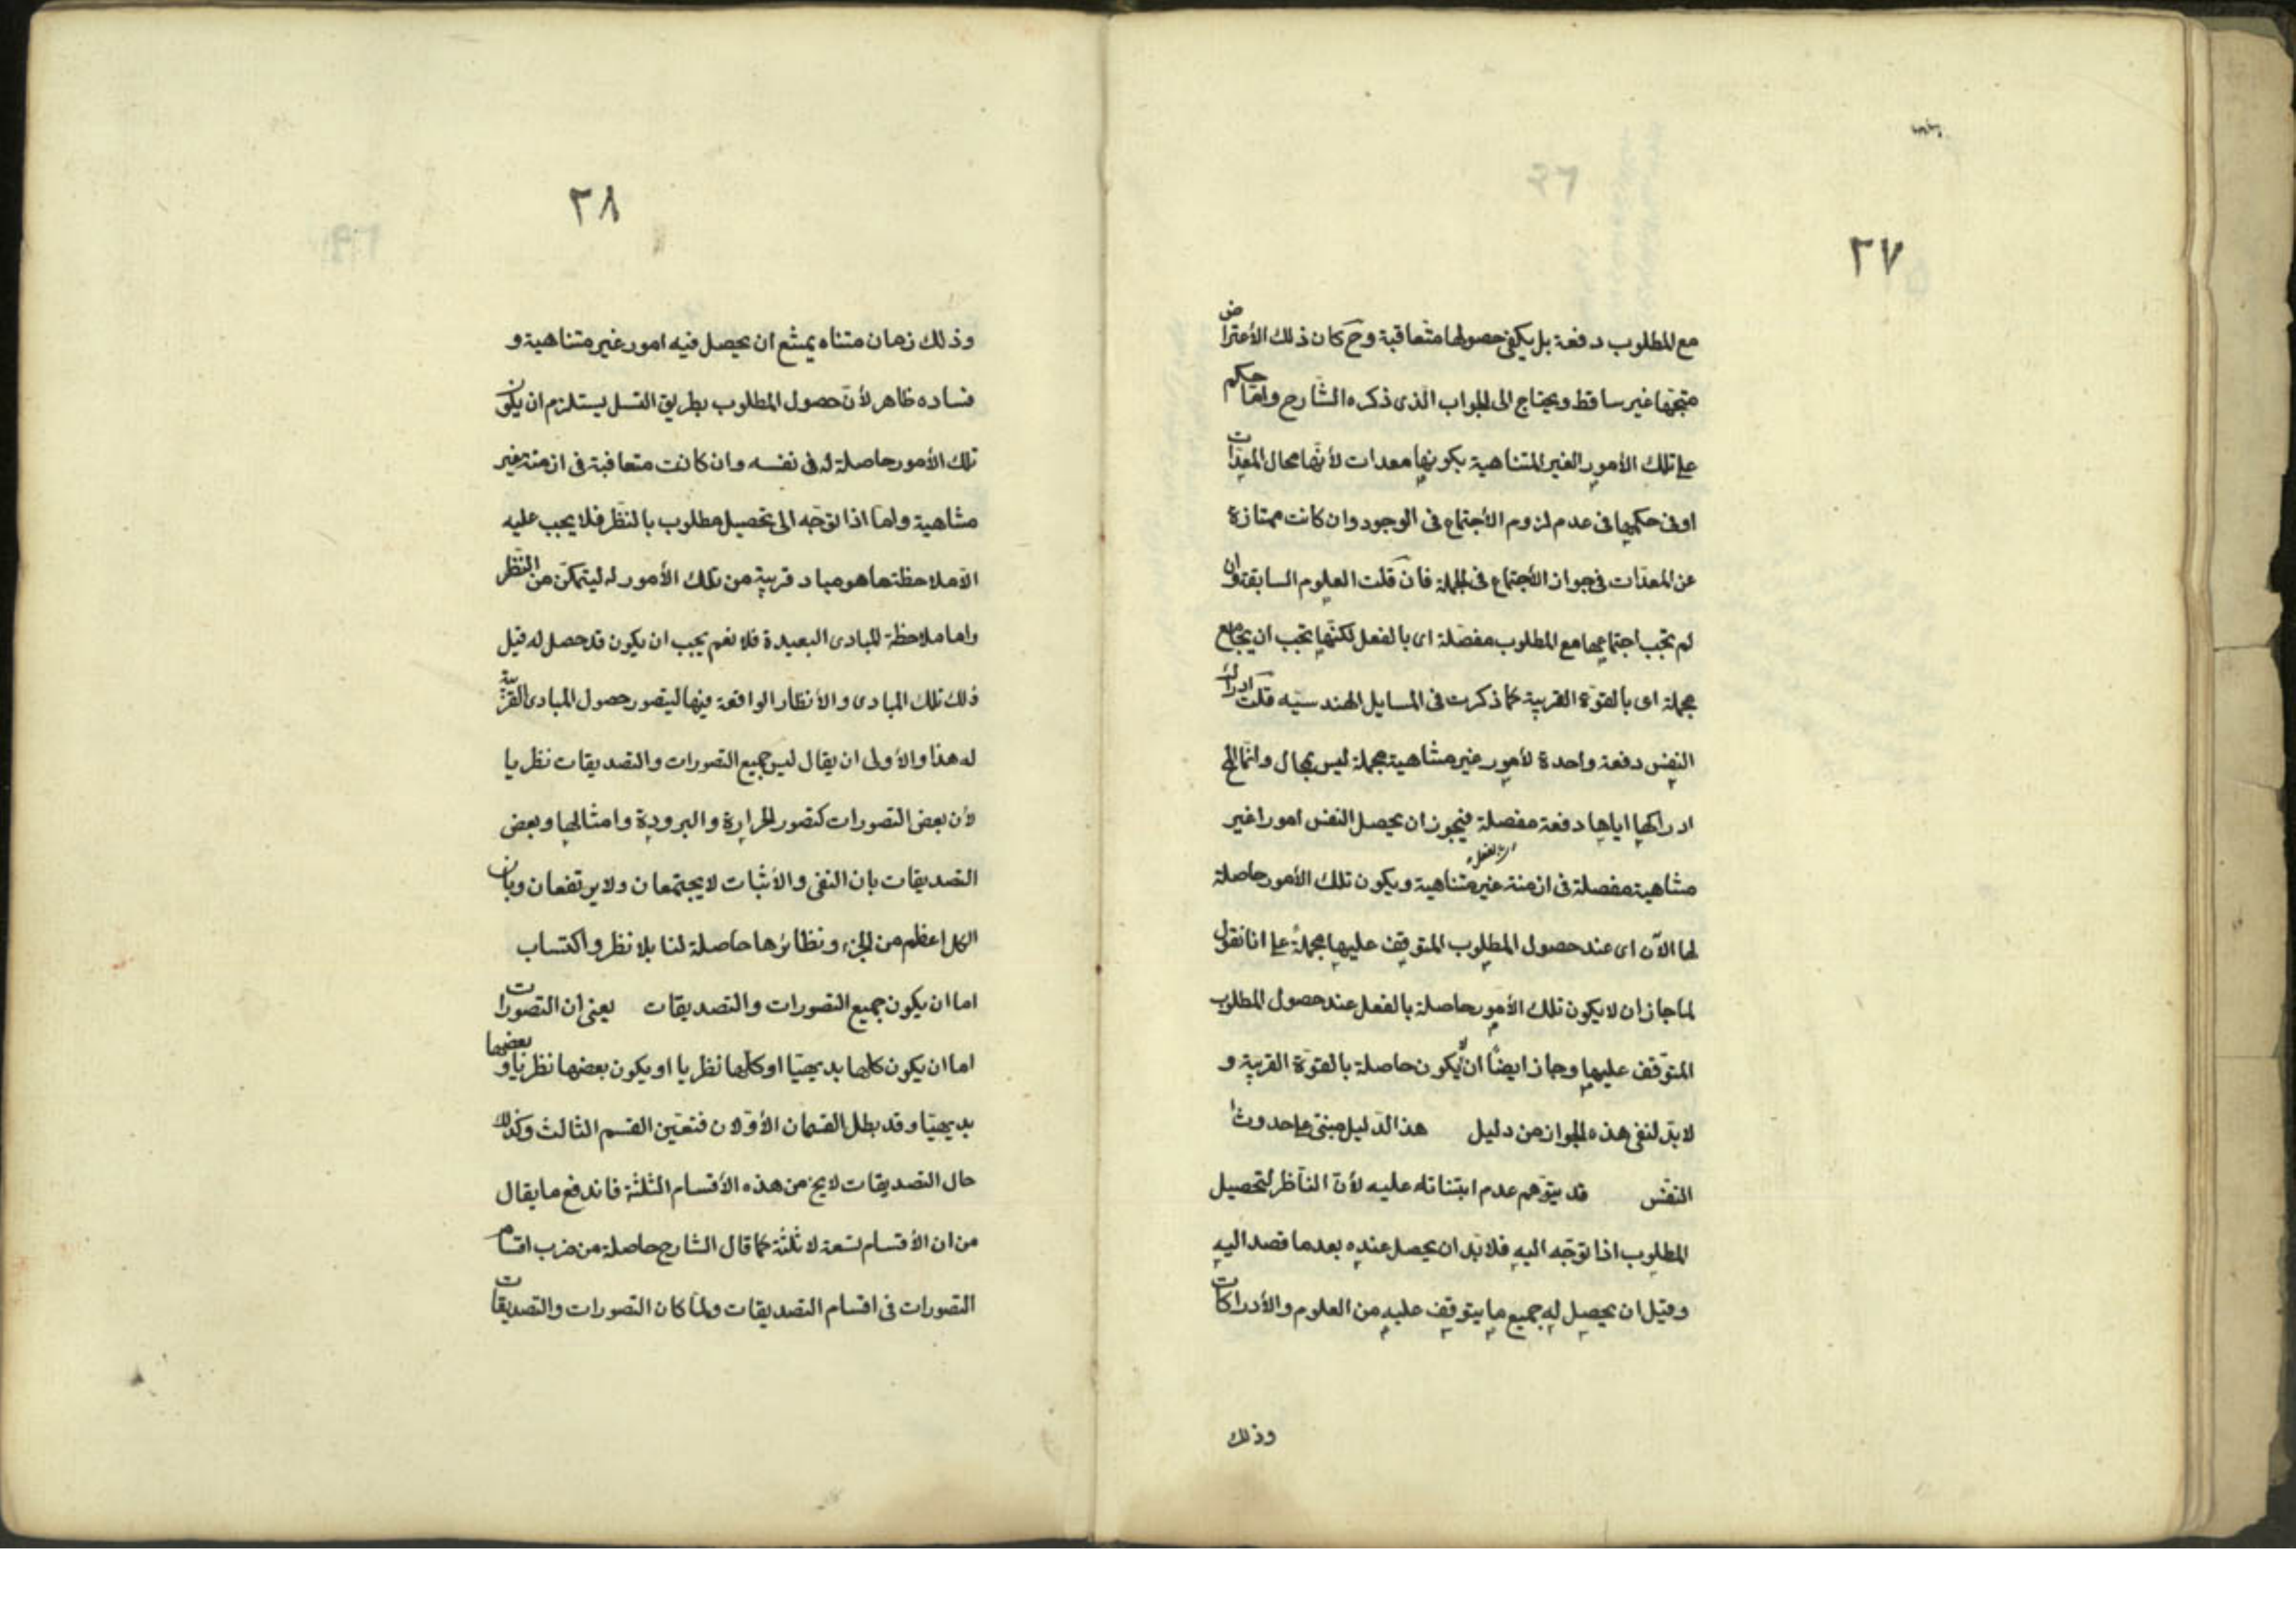 ٢٧
مع المطلوب دفعة بل يكفى حصولها متعاقبة وح كان ذلك الأعتراض
متجها غير ساقط ويحتاج الى الجواب الذى ذكره الشارح واما حكم
على تلك الأمور الغير المتناهية بكونها معدات لأنها محال المعدات
او فى حكمها فى عدم لزوم الأجتماع فى الوجود وان كانت ممتازة
عن المعدات فى جواز الأجتماع فى الجملة فان قلت العلوم السابقة وان
لم تجب اجتماعها مع المطلوب مفصلة اى بالفعل لكنها تجب ان يجامع
مجملة اى بالقوة القريبة كما ذكرت فى المسايل الهندسيه قلت ادراك
النفس دفعة واحدة لأمور غير متناهية مجملة ليس بمحال وانما المح
ادراكها اياها دفعة مفصلة فيجوز ان يحصل النفس امورا غير
متناهية مفصلة فى ازمنة غير متناهية ويكون تلك الأمور حاصلة
لها الآن اى عند حصول المطلوب المتوقف عليها مجملة على انا نقول
لما جاز ان لا يكون تلك الأمور حاصلة بالفعل عند حصول المطلوب
المتوقف عليها وجاز ايضا ان لا يكون حاصلة بالقوة القريبة و
لا بد لنفى هذه الجواز من دليل هذا الدليل مبنى على حدوث
النفس قد يتوهم عدم ابتنائه عليه لأن الناظر لتحصيل
المطلوب اذا توجه اليه فلا بد ان يحصل عنده بعد ما قصد اليه
وقيل ان يحصل له جميع ما يتوقف عليه من العلوم والأدراكات
وذلك
٢٨
وذلك زمان متناه يمتنع ان يحصل فيه امور غير متناهية و
فساده ظاهر لأن حصول المطلوب بطريق التسل يستلزم ان يكون
تلك الأمور حاصلة له فى نفسه وان كانت متعاقبة فى ازمنة غير
متناهية واما اذا توجه الى تحصيل مطلوب بالنظر فلا يجب عليه
الا ملاحظة ما هو مباد قريبة من تلك الأمور له ليتمكن من النظر
واما ملاحظة المبادى البعيدة فلا نعم يجب ان يكون قد حصل له قبل
ذلك تلك المبادى والأنظار الواقعة فيها ليتصور حصول المبادى القريبة
له هذا والأولى ان يقال ليس جميع التصورات والتصديقات نظريا
لأن بعض التصورات كتصور الحرارة والبرودة وامثالها وبعض
التصديقات بان النفى والأثبات لا يجتمعان ولا يرتفعان وبان
الكل اعظم من الجزء ونظائرها حاصلة لنا بلا نظر واكتساب
اما ان يكون جميع التصورات والتصديقات يعنى ان التصورات
اما ان يكون كلها بديهيا او كلها نظريا او يكون بعضها نظريا وبعضها
بديهيا وقد بطل القسمان الأولان فتعين القسم الثالث وكذلك
حال التصديقات لا يخ من هذه الأقسام الثلثة فاندفع ما يقال
من ان الأقسام تسعة لا ثلثة كما قال الشارح حاصلة من ضرب اقسام
التصورات فى اقسام التصديقات ولما كان التصورات والتصديقات